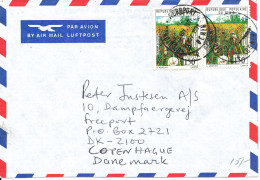 PAR AVION
BY AIR MAIL LUFTPOST
REPUBLIQUE POPULAIRE
REPUBLIQUE POPULAIRE
Peter Justesen A/S
10, Dampfaergevej
Freeport
P.o Box 2721
DK-2100
COPENHAGUE
Danemark